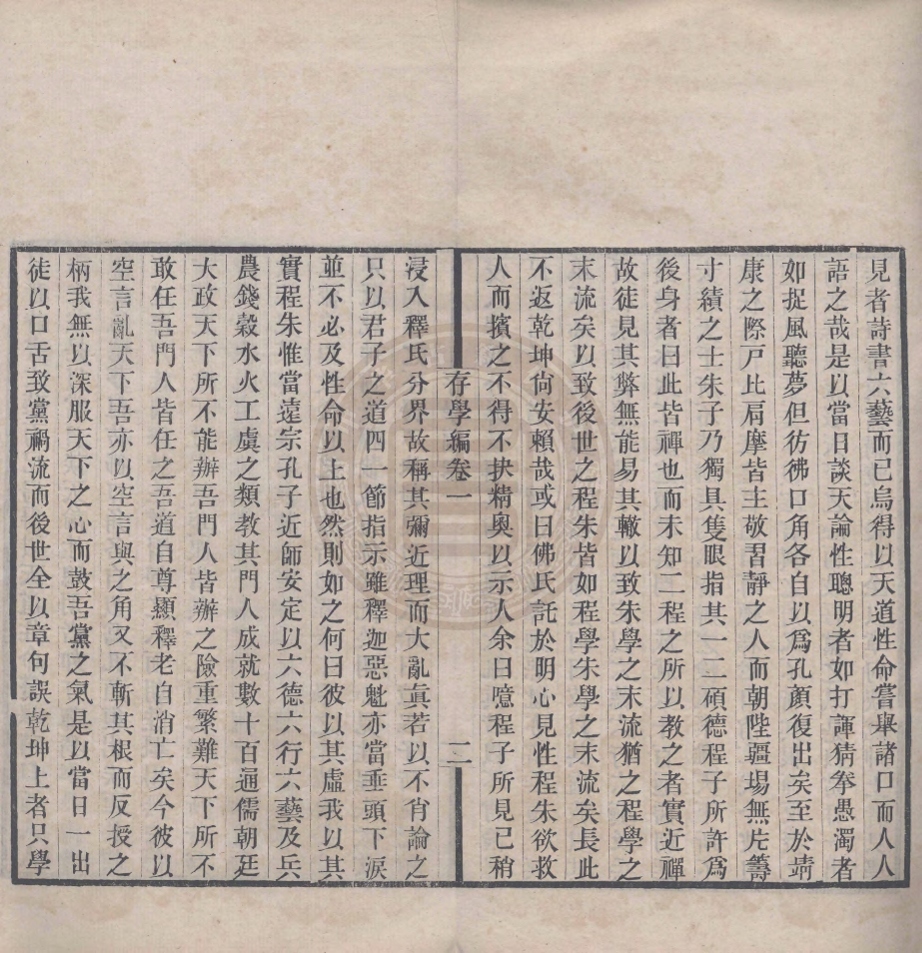 見者詩書六藝而已烏得以天道性命嘗舉諸口而人人
語之哉是以當日談天論性聰明者如打諢猜拳愚濁者
如捉風聽夢但彷彿口角各自以爲孔顏復出矣至於靖
康之際戸比肩摩皆主敬習靜之人而朝陛疆場無片籌
寸績之士朱子乃獨具隻眼指其一二碩德程子所許爲
後身者曰此皆禪也而未知二程之所以教之者實近禪
故徒見其弊無能易其轍以致朱學之末流猶之程學之
末流矣以致後世之程朱皆如程學朱學之末流矣長此
不返乾坤尙安賴哉或曰佛氏託於明心見性程朱欲救
人而擯之不得不抉精奧以示人余曰噫程子所見已稍
存學編卷一
二
浸入釋氏分界故稱其彌近理而大亂眞若以不肖論之
只以君子之道四一節指示雖釋迦惡魁亦當垂頭下淚
並不必及性命以上也然則如之何曰彼以其虛我以其
實程朱惟當遠宗孔子近師安定以六德六行六藝及兵
農錢穀水火工虞之類教其門人成就數十百通儒朝廷
大政天下所不能辦吾門人皆辦之險重繁難天下所不
敢任吾門人皆任之吾道自尊顯釋老自消亡矣今彼以
空言亂天下吾亦以空言與之角又不斬其根而反授之
柄我無以深服天下之心而鼓吾黨之氣是以當日一出
徒以口舌致黨禍流而後世全以章句誤乾坤上者只學